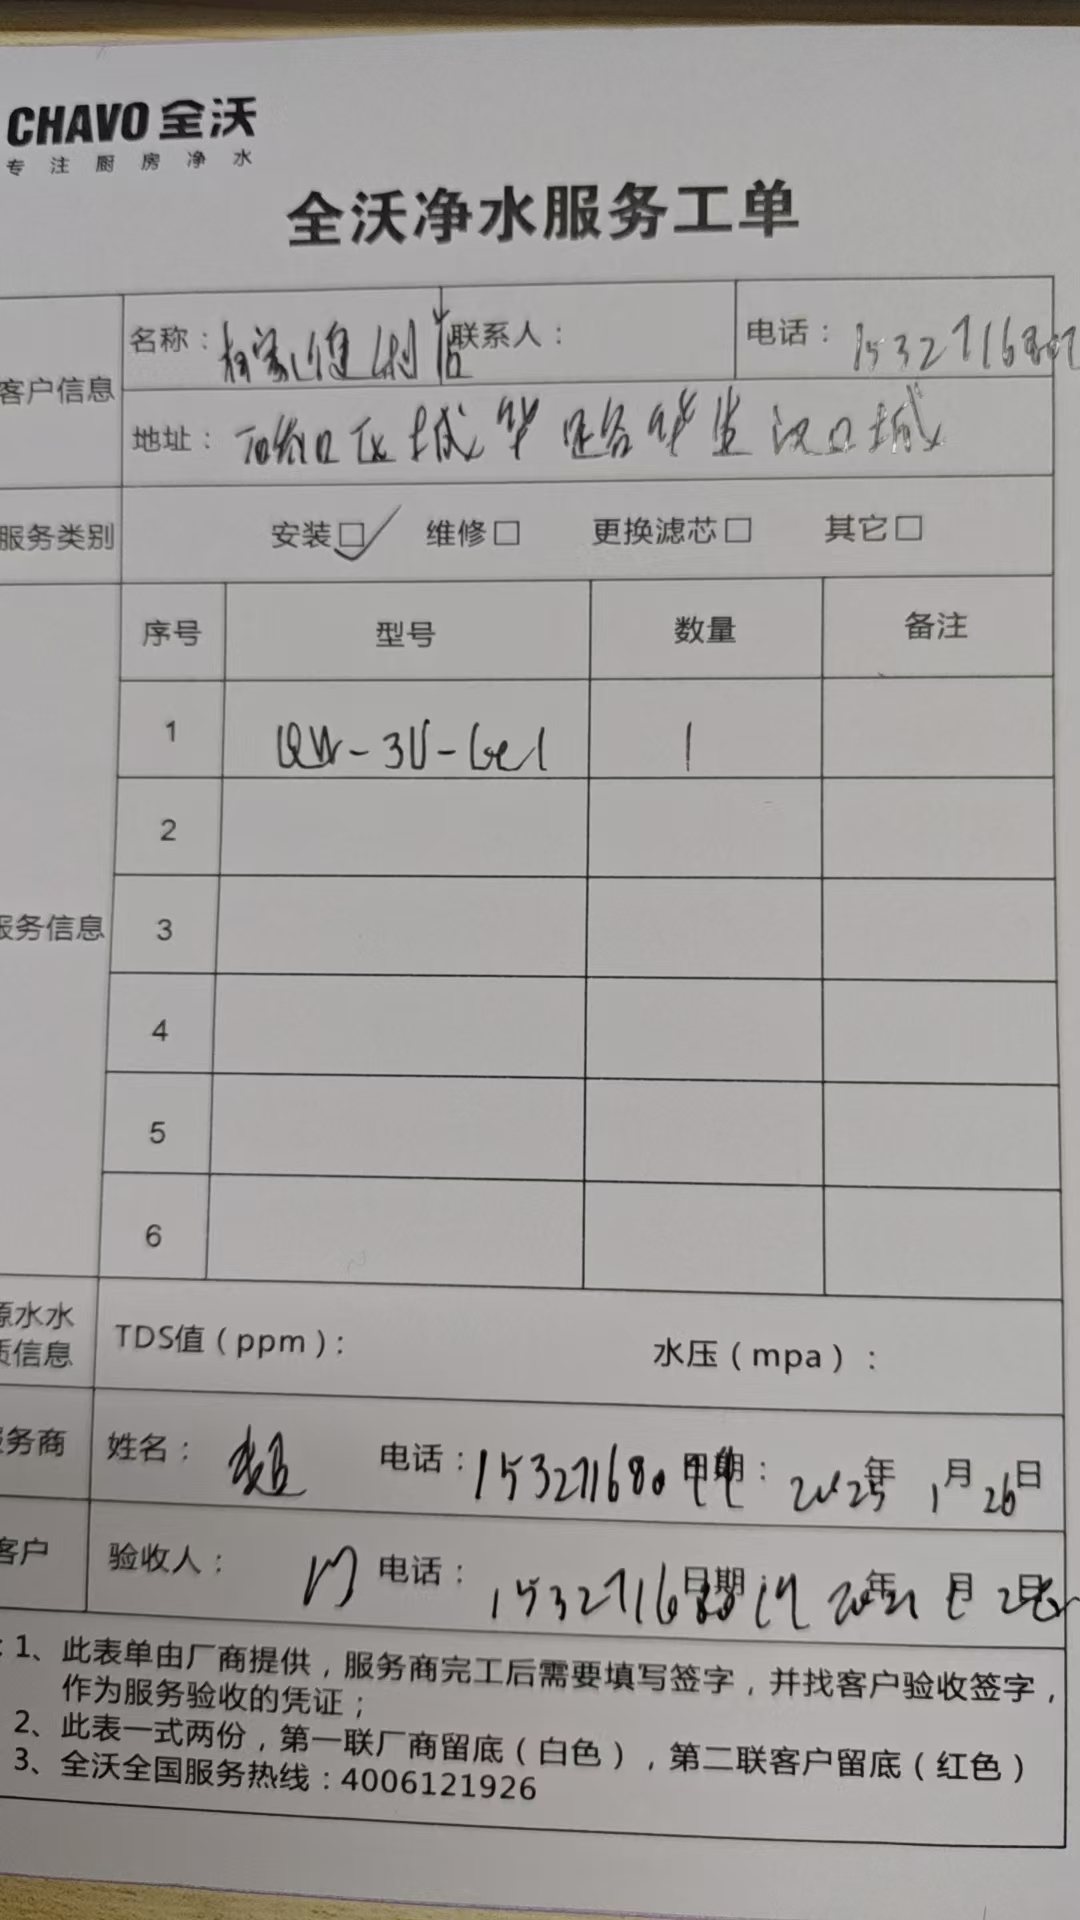 CHAVO 全沃
专注厨房净水
全沃净水服务工单
客户信息 名称： 便利店 联系人： 电话：
地址： 硚口区 城华路华生汉口城
服务类别 安装□✓ 维修□ 更换滤芯□ 其它□
序号 型号 数量 备注
1 1
2
服务信息 3
4
5
6
源水水
质信息 TDS值（ppm）： 水压（mpa）：
服务商 姓名： 电话： 日期： 2025年 1月 26日
客户 验收人： 电话： 日期： 年 月 日
：1、此表单由厂商提供，服务商完工后需要填写签字，并找客户验收签字，
作为服务验收的凭证；
2、此表一式两份，第一联厂商留底（白色），第二联客户留底（红色）
3、全沃全国服务热线：4006121926